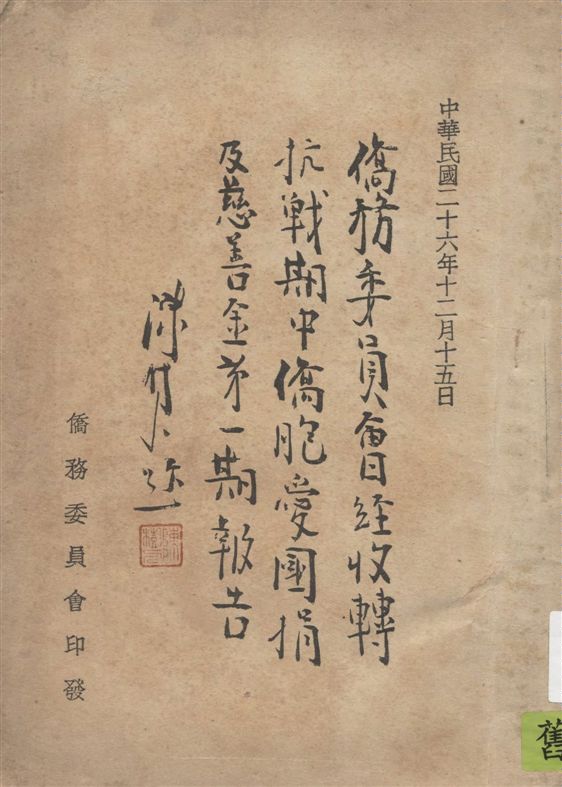 中華民國二十六年十二月十五日
僑務委員會經收轉
抗戰期中僑胞愛國捐
及慈善金第一期報告
陳樹人題
僑務委員會印發
舊